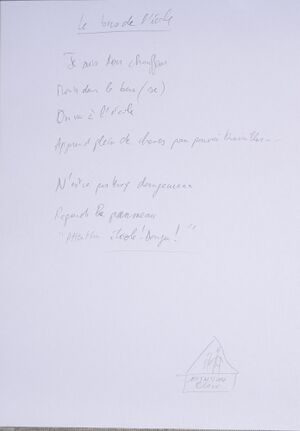 Le bus de l'école
Je suis ton chauffeur
Monte dans le bus (se)
On va à l'école
Apprend plein de choses pour pouvoir
N'est ce pas trop dangereux
Regarde le panneau
"Attention école! Danger!"
ATTENTION
ECOLE